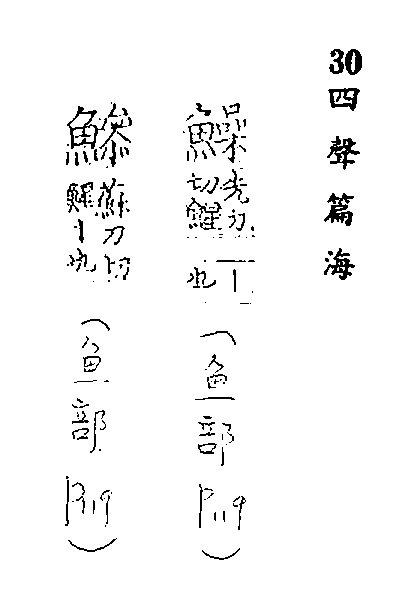 30四聲篇海
鱢先刀切鯹丨也（魚部P119）
鰺蘇刀切鯹丨也（魚部P119）